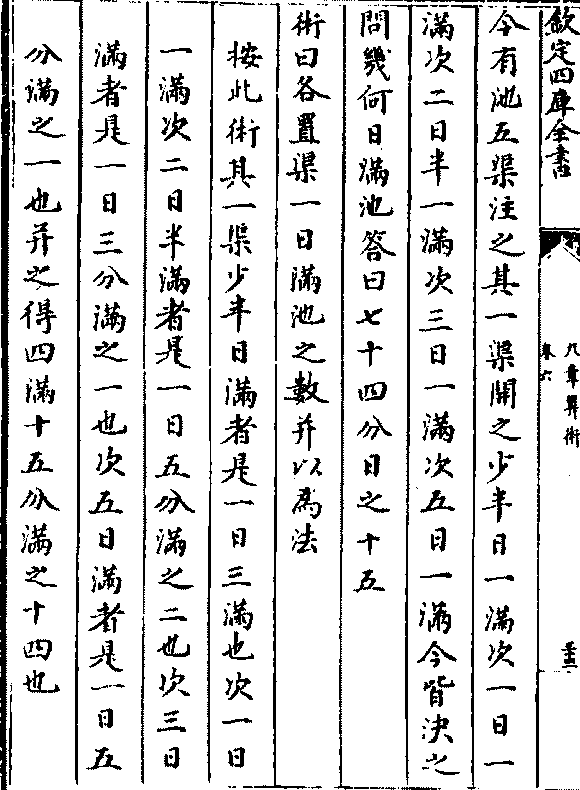 欽定四庫全書
九章算術
卷六
今有池五渠注之其一渠開之少半日一滿次一日一
滿次二日半一滿次三日一滿次五日一滿今皆決之
問幾何日滿池答曰七十四分日之十五
術曰各置渠一日滿池之數并以為法
按此術其一渠少半日滿者是一日三滿也次一日
一滿次二日半滿者是一日五分滿之二也次三日
滿者是一日三分滿之一也次五日滿者是一日五
分滿之一也并之得四滿十五分滿之十四也